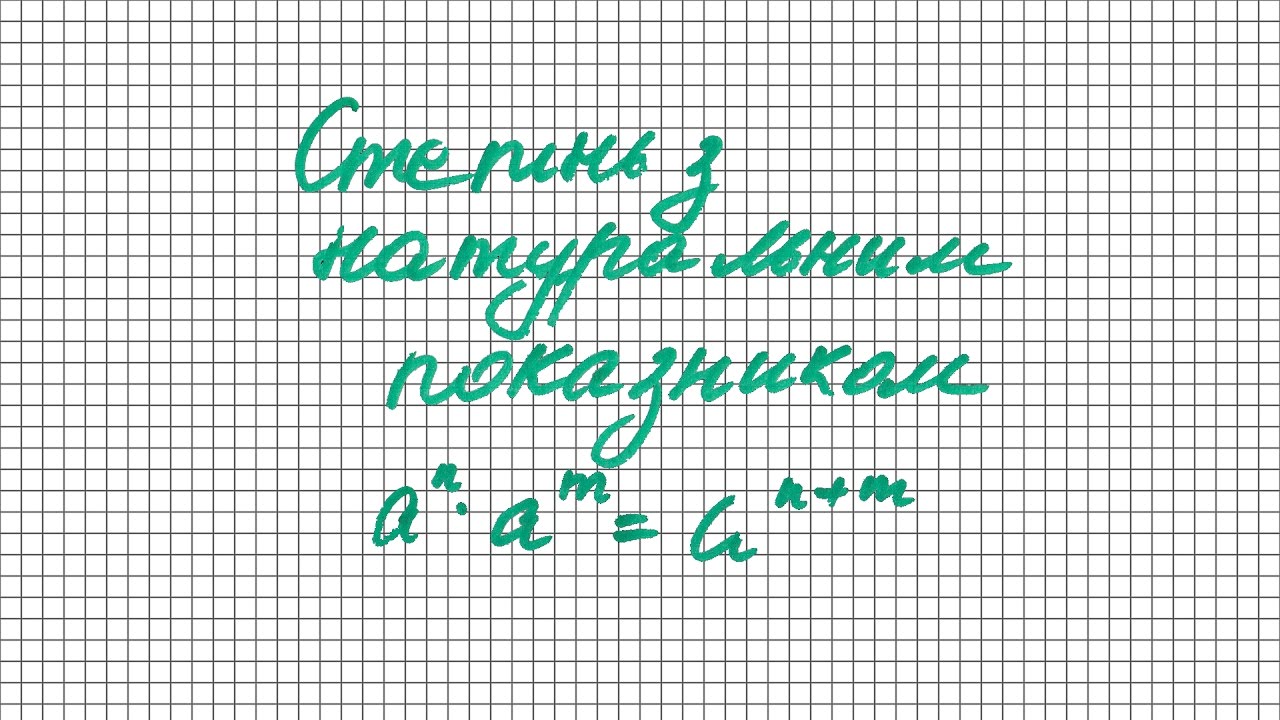 Степінь з
натуральним
показником
aⁿ · aᵐ = aⁿ⁺ᵐ